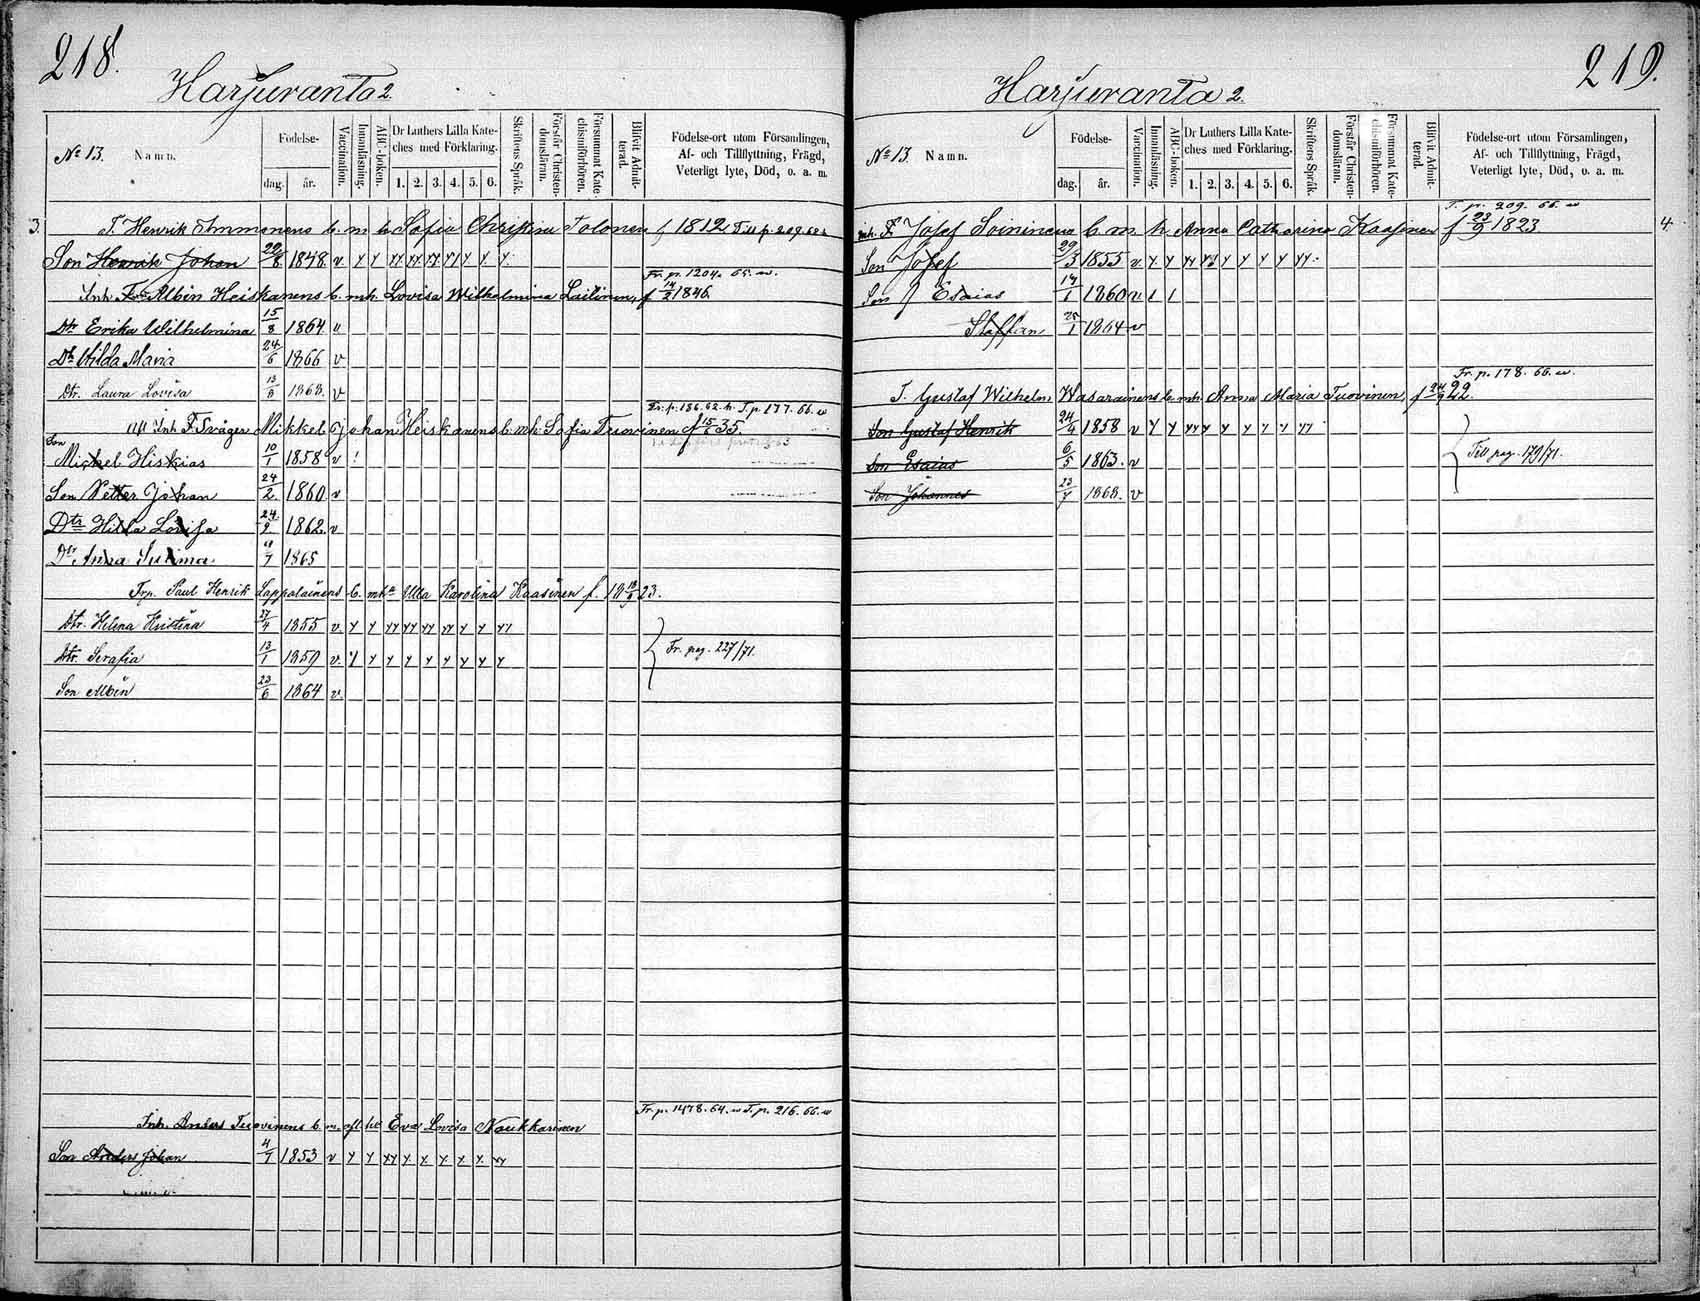 218.
Harjuranta 2.
No 13. Namn.
Födelse-
dag. år.
Vaccination.
Innanläsning.
ABC-boken.
Dr Luthers Lilla Kate-
ches med Förklaring.
1. 2. 3. 4. 5. 6.
Skriftens Språk.
Förstår Christen-
domsläran.
Försummat Kate-
chismiförhören.
Blifvit Admit-
terad.
Födelse-ort utom Församlingen,
Af- och Tillflyttning, Frägd,
Veterligt lyte, Död, o. a. m.
3. T. Henrik Immonens b. m h Sofia Christina Tolonen f 1812 Till p. 209.68
Son Henrik Johan 29/8 1848. v y y yy yy yy y y y y
Fr. p. 1204. 65.
Inh. Albin Heiskanens b. mh. Lovisa Wilhelmina Laitinen, f 14/2 1846.
Dtr Erika Wilhelmina 15/8 1864. v
Dtr Hilda Maria 24/6 1866 v
Dtr. Laura Lovisa 13/8 1868. v
Fr. p. 186.62. T. p. 177. 66.
Inh F. Svåger Mikkel Johan Heiskanens b. mh. Sofia Tuovinen f 15/6 35.
Son
Mickel Hiskias 10/1 1858 v
Son Petter Johan 24/2 1860. v
Dtr Hilda Lovisa 24/2 1862. v
Dtr. Anna 1865
Paul Henrik Lappalainens b. mh Ulla Karolina Kaasinen f. 18 23.
Dtr. Helena Kristina 27/4 1855 v y y yy yy yy yy y y yy
Dtr. Serafia 13/1 1859 v. y y y y y y y y y
Fr. pag. 227/71.
Son Albin 23/6 1864 v.
Fr. p. 1478. 64. T. p. 216. 66.
Inh. Anders Tuovinens b. m. Eva Lovisa Naukkarinen
Son Anders Johan 4/7 1853 v y y yy y y y y y yy
219.
Harjuranta 2.
No 13. Namn.
Födelse-
dag. år.
Vaccination.
Innanläsning.
ABC-boken.
Dr Luthers Lilla Kate-
ches med Förklaring.
1. 2. 3. 4. 5. 6.
Skriftens Språk.
Förstår Christen-
domsläran.
Försummat Kate-
chismiförhören.
Blifvit Admit-
terad.
Födelse-ort utom Församlingen,
Af- och Tillflyttning, Frägd,
Veterligt lyte, Död, o. a. m.
T. p. 209. 66.
inh. F. Josef Soininens b. m. h Anna Catharina Kaasinen f 23/9 1823. 4.
Son Josef 29/3 1855 v y y yy yy y y y y yy
Son Esaias 17/1 1860 v 1 1
Staffan 25/1 1864 v
Fr. p. 178. 66.
T. Gustaf Wilhelm Wasarainens b. mh. Anna Maria Tuovinen, f
Son Gustaf Henrik 24/4 1858 v y y yy y y y y y yy
Son Esaias 6/5 1863. v
Till pag. 179/71.
Son Johannes 23/7 1868. v